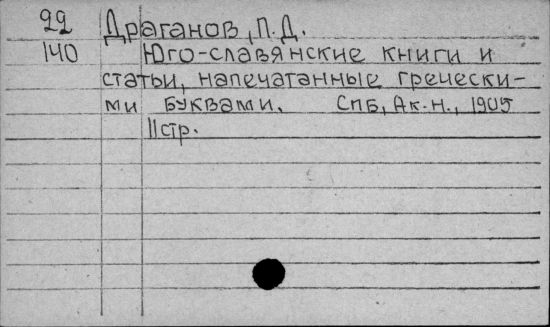 22 Драганов, П. Д.
140 Юго-славянские книги и
статьи, напечатанные гречески-
ми буквами. Спб, Ак. н., 1905
11 стр.